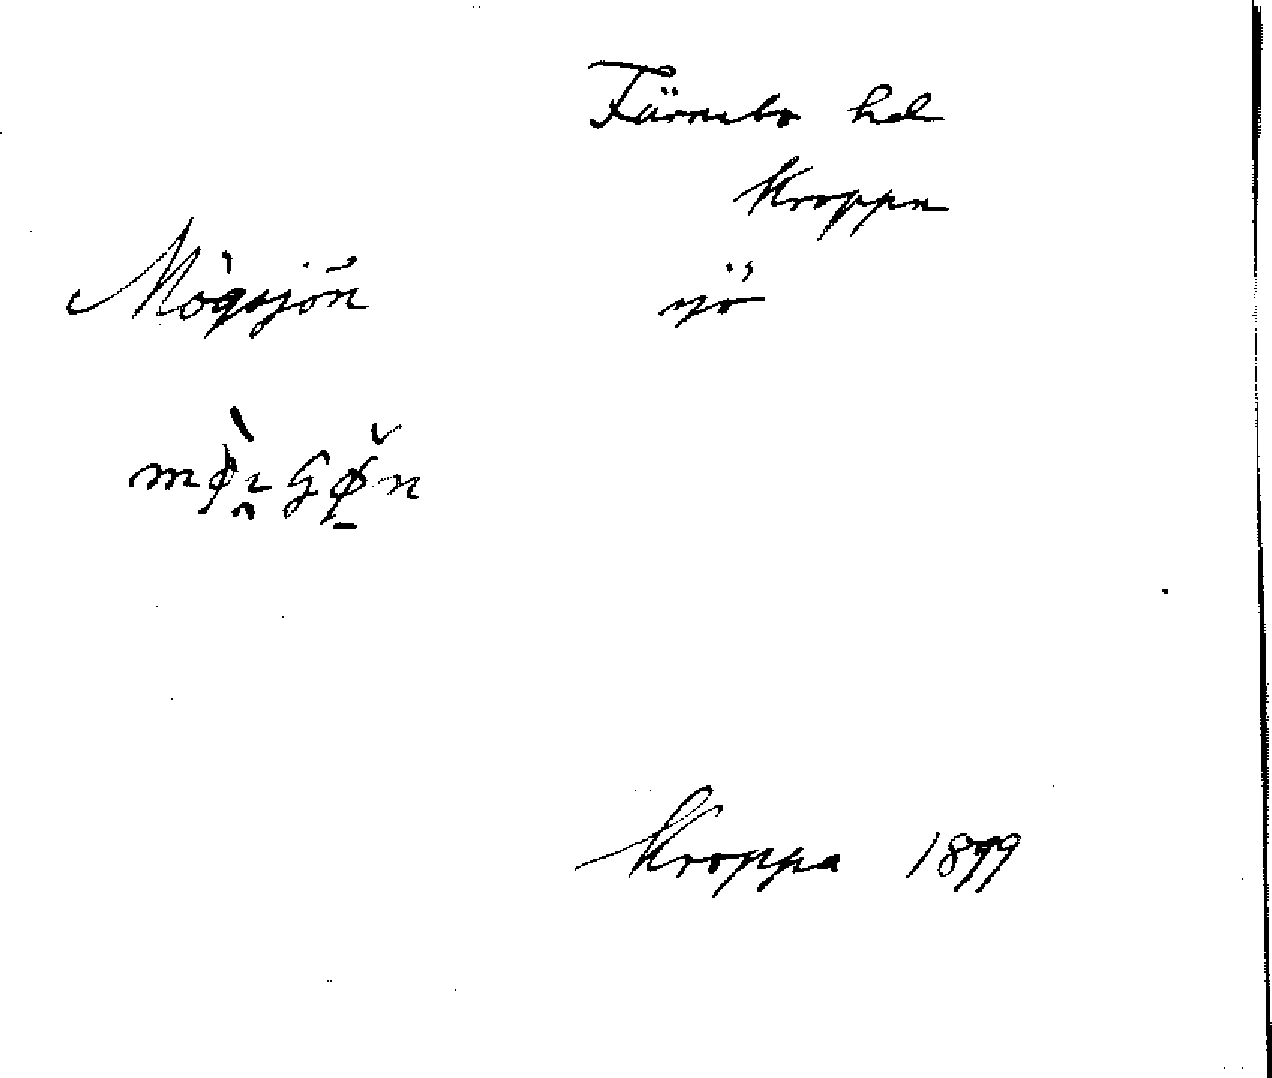 Färnebo hd
Kroppa
Mögsjön sjö
Kroppa 1899